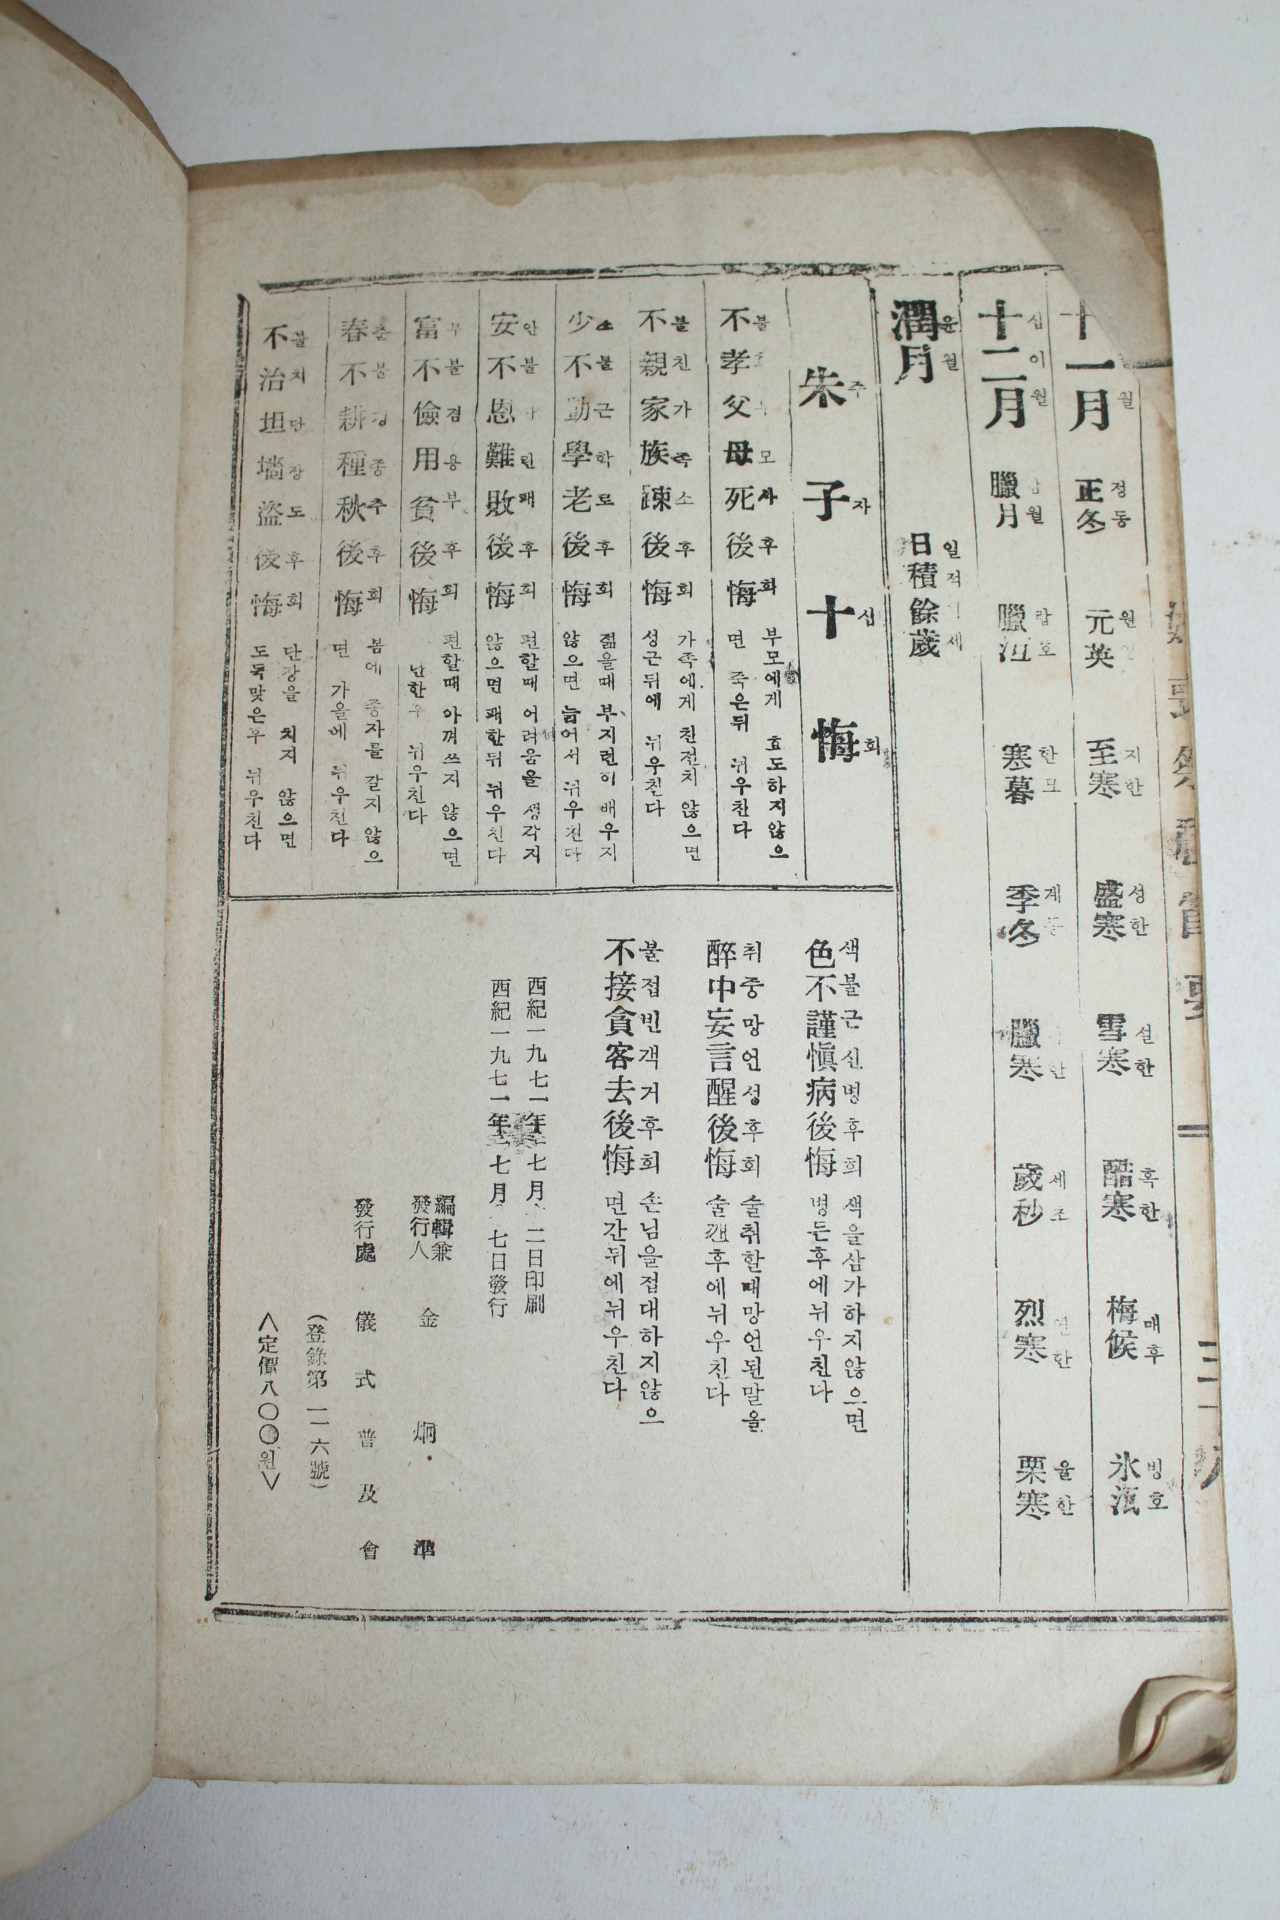 十一月 正冬 元英 至寒 盛寒 雪寒 酷寒 梅候 氷沍
월 정동 원 지한 성한 설한 혹한 매후 빙호
十二月 臘月 臘沍 寒暮 季冬 臘寒 歲秒 烈寒 栗寒
십이월 월 랍호 한모 계동 한 세초 렬한 율한
潤月 日積餘歲
윤월 일적 세
朱子十悔
주자십회
不孝父母死後悔
불효부모사후회
부모에게 효도하지않으
면 죽은뒤 뉘우찬다
不親家族疎後悔
불친가족소후회
가족에게 친전치 않으면
성근뒤에 뉘우친다
少不勤學老後悔
소불근학로후회
젊을때 부지런히 배우지
않으면 늙어서 뉘우친다
安不思難敗後悔
안불 란패후회
편할때 어려움을 생각지
않으면 패한뒤 뉘우친다
富不儉用貧後悔
부불검용부후회
편할때 아껴쓰지 않으면
난한후 뉘우친다
春不耕種秋後悔
춘불경종추후회
봄에 종자를 갈지 않으
면 가을에 뉘우친다
不治坦墻盜後悔
불치단장도후회
단장을 치지 않으면
도둑맞은후 뉘우친다
色不謹愼病後悔
색불근신병후회
색을삼가하지않으면
병든후에뉘우친다
醉中妄言醒後悔
취중망언성후회
술취할때망언된말을
술깬후에뉘우친다
不接賓客去後悔
불접빈객거후회
손님을접대하지않으
면간뒤에뉘우친다
西紀一九七一年 七月 二日印刷
西紀一九七一年 七月 七日發行
編輯兼
發行人 金炯準
發行處 儀式普及會
(登錄第一一六號)
<定價八〇〇원>